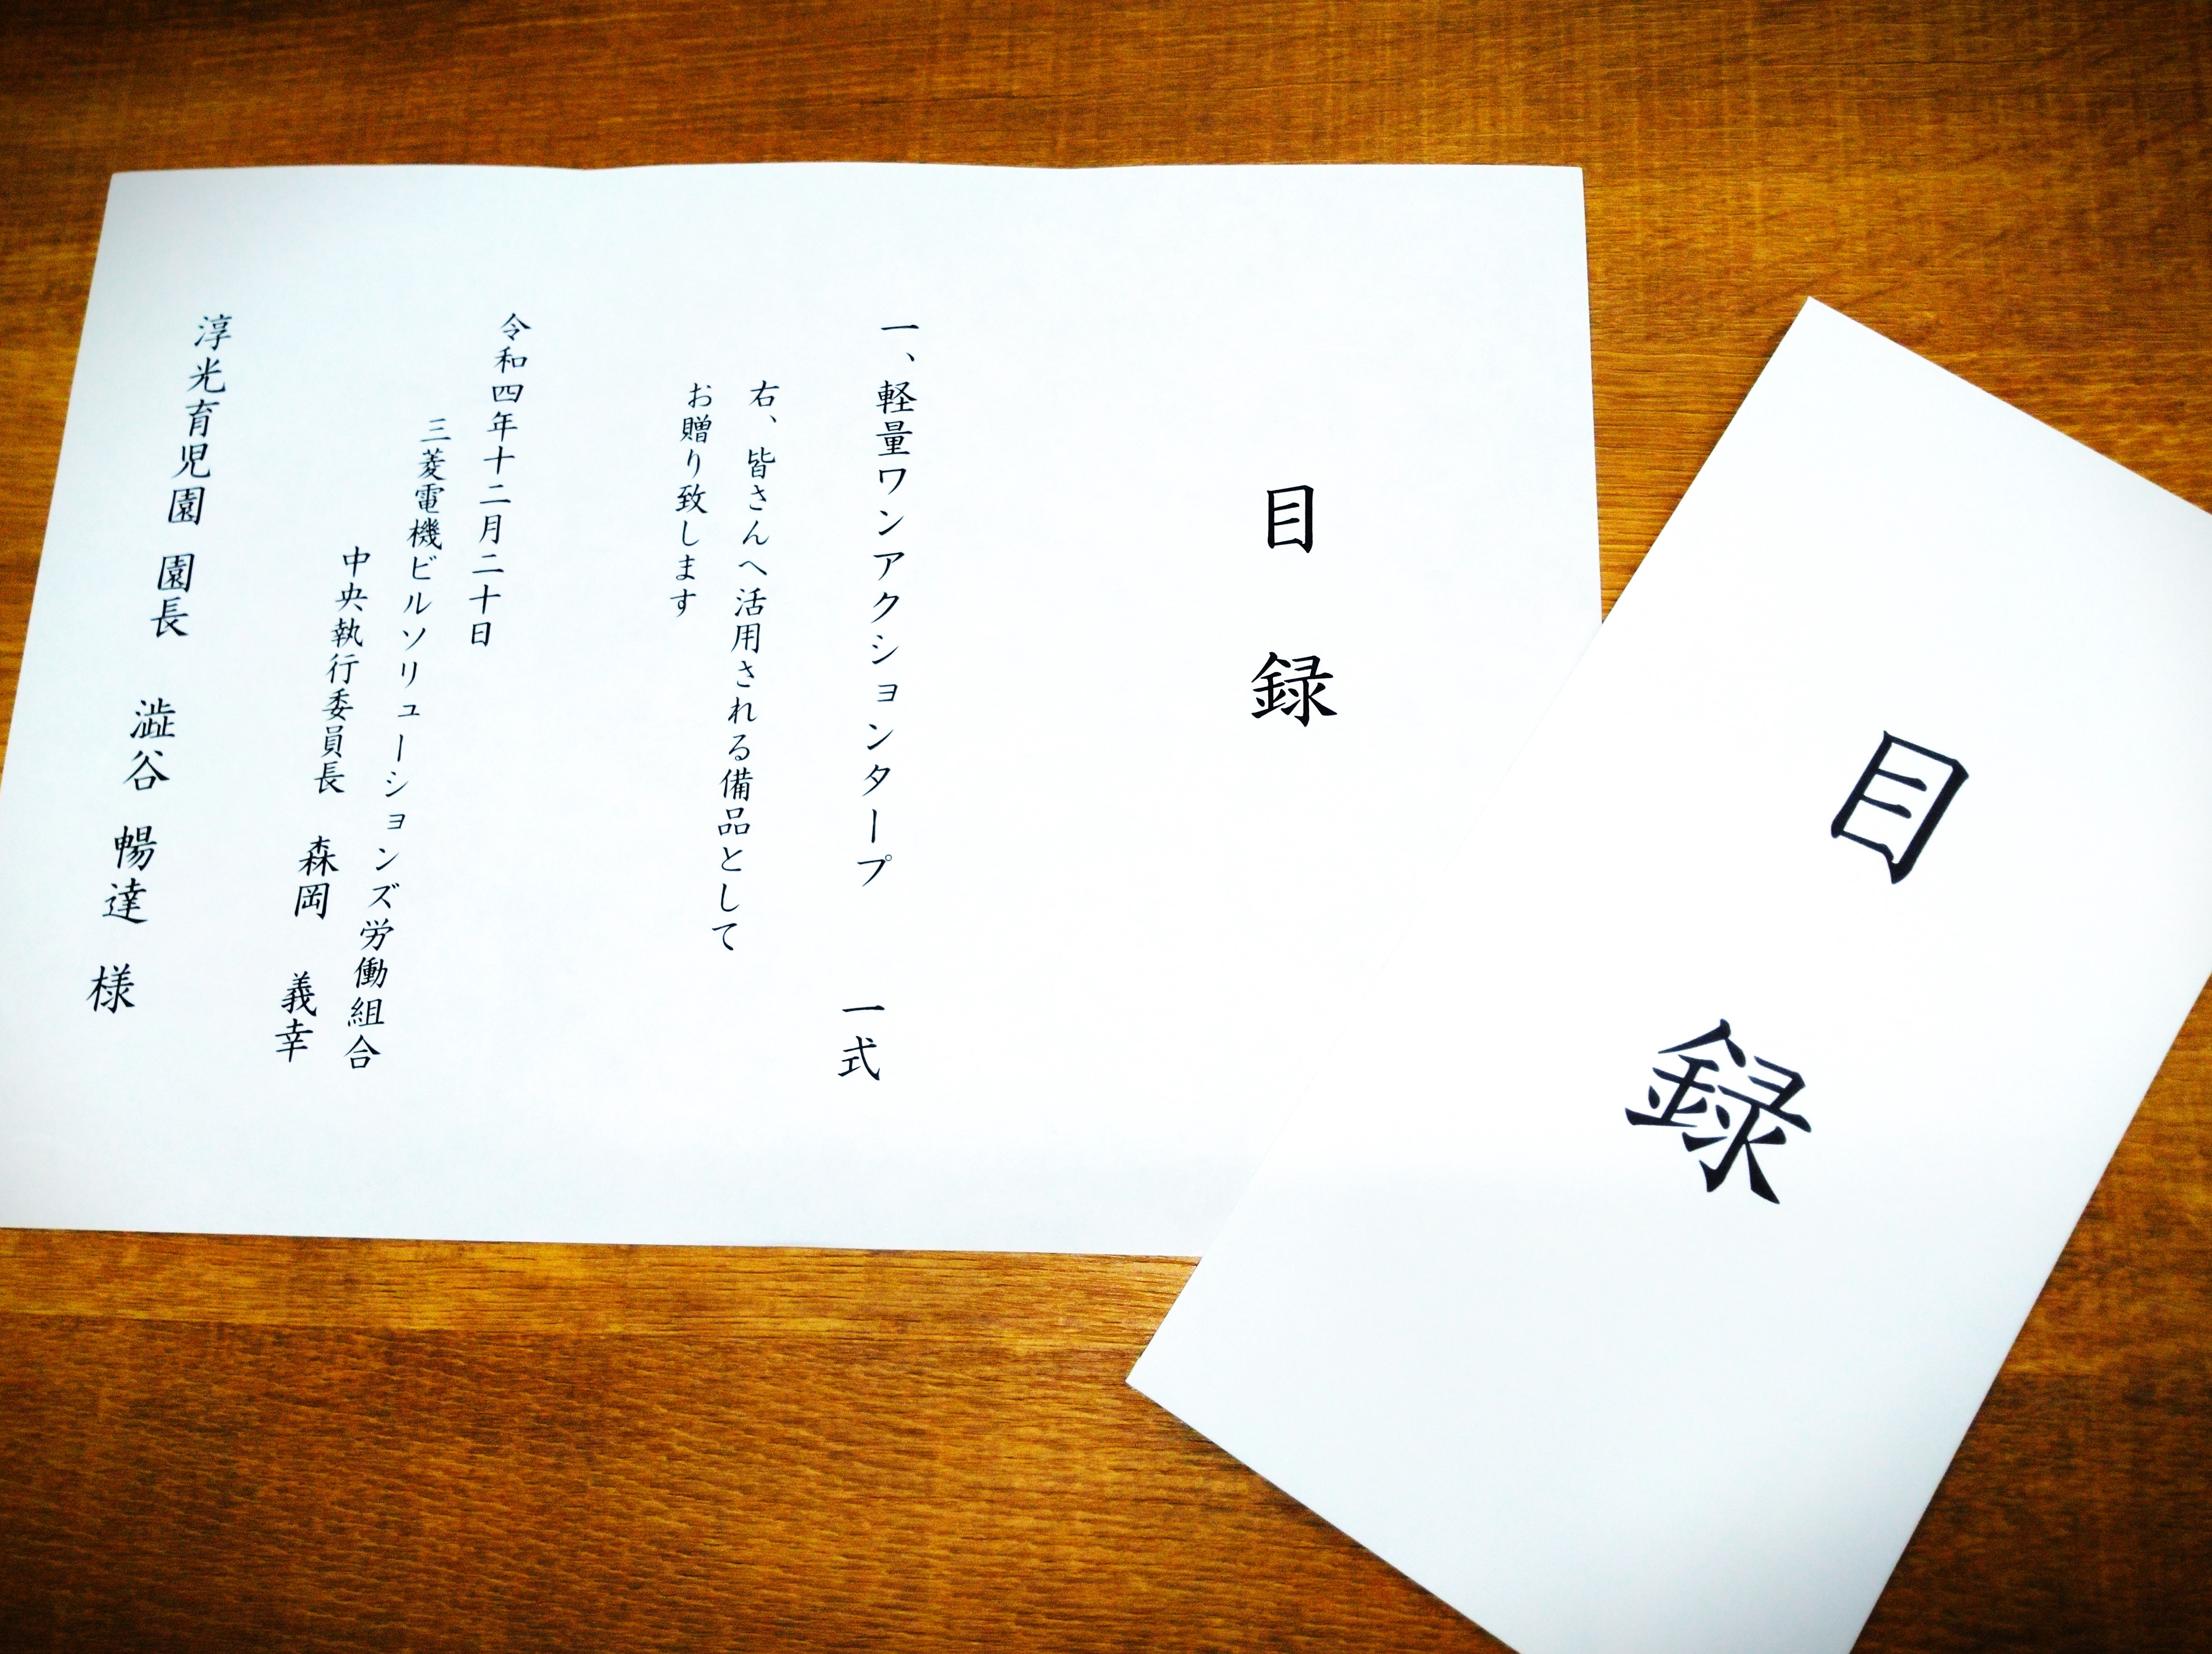 目録
一、軽量ワンアクションタープ 一式
右、皆さんへ活用される備品として
お贈り致します
令和四年十二月二十日
三菱電機ビルソリューションズ労働組合
中央執行委員長 森岡 義幸
淳光育児園 園長 澁谷 暢達 様
目録